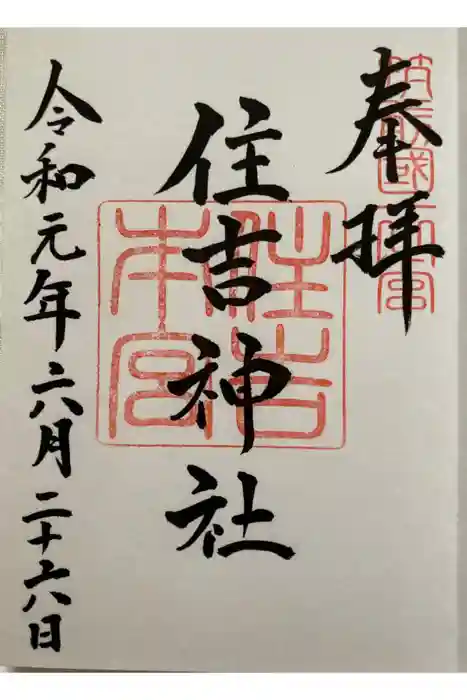 奉拝
筑前國一之宮
住吉神社
住吉本宮
令和元年六月二十六日